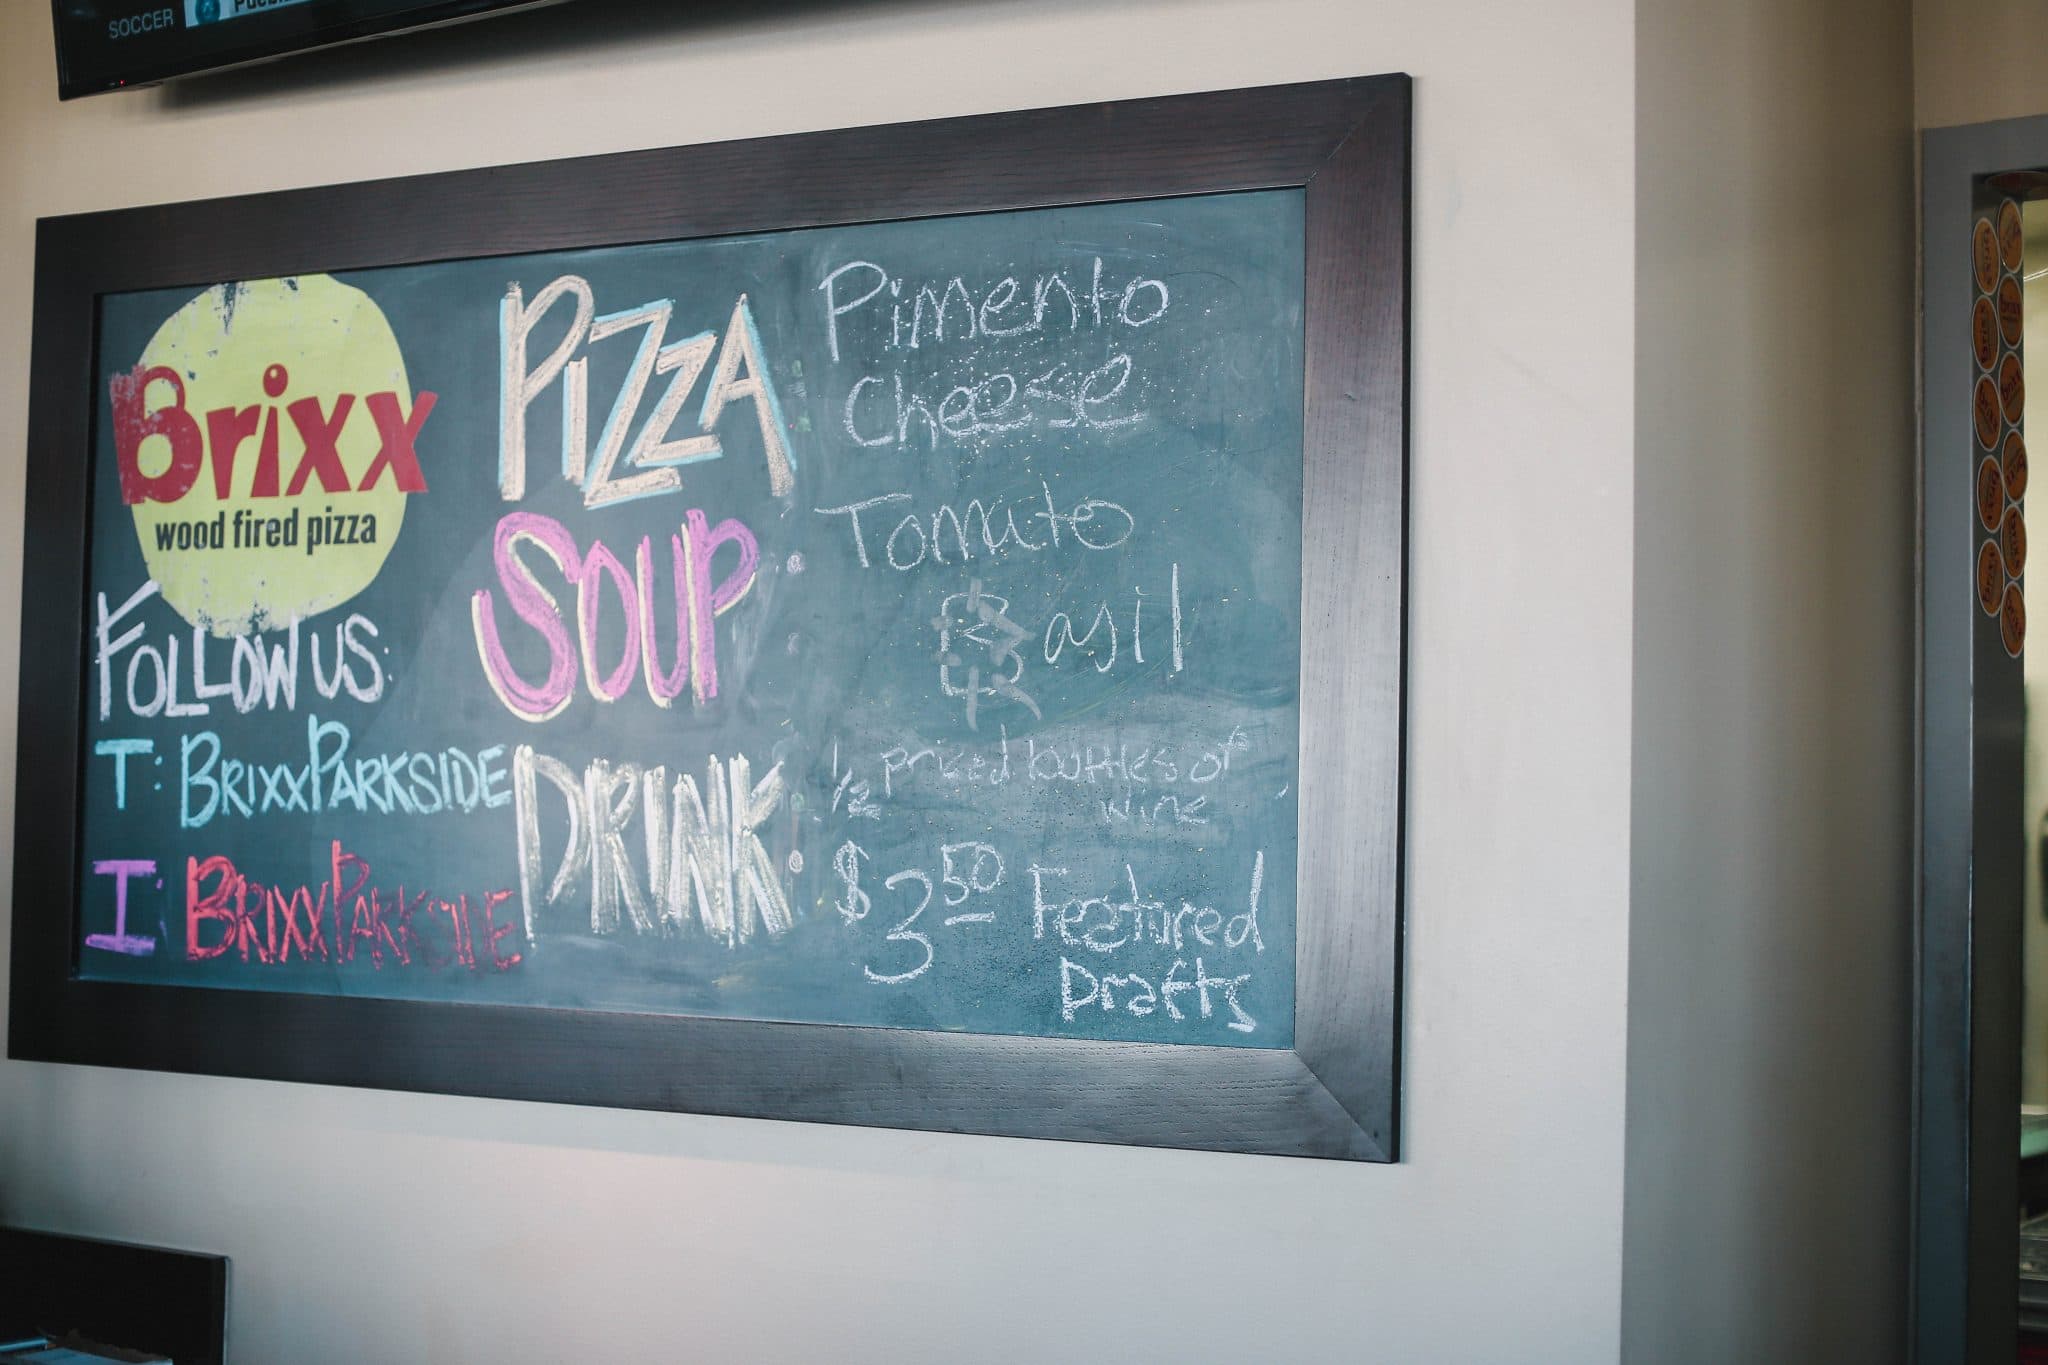 SOCCER
Brixx
wood fired pizza
FOLLOW US:
T: BRIXXPARKSIDE
I: BRIXXPARKSIDE
PIZZA: Pimento
Cheese
SOUP: Tomato
Basil
DRINK: 1/2 priced bottles of
wine
$3.50 Featured
Drafts